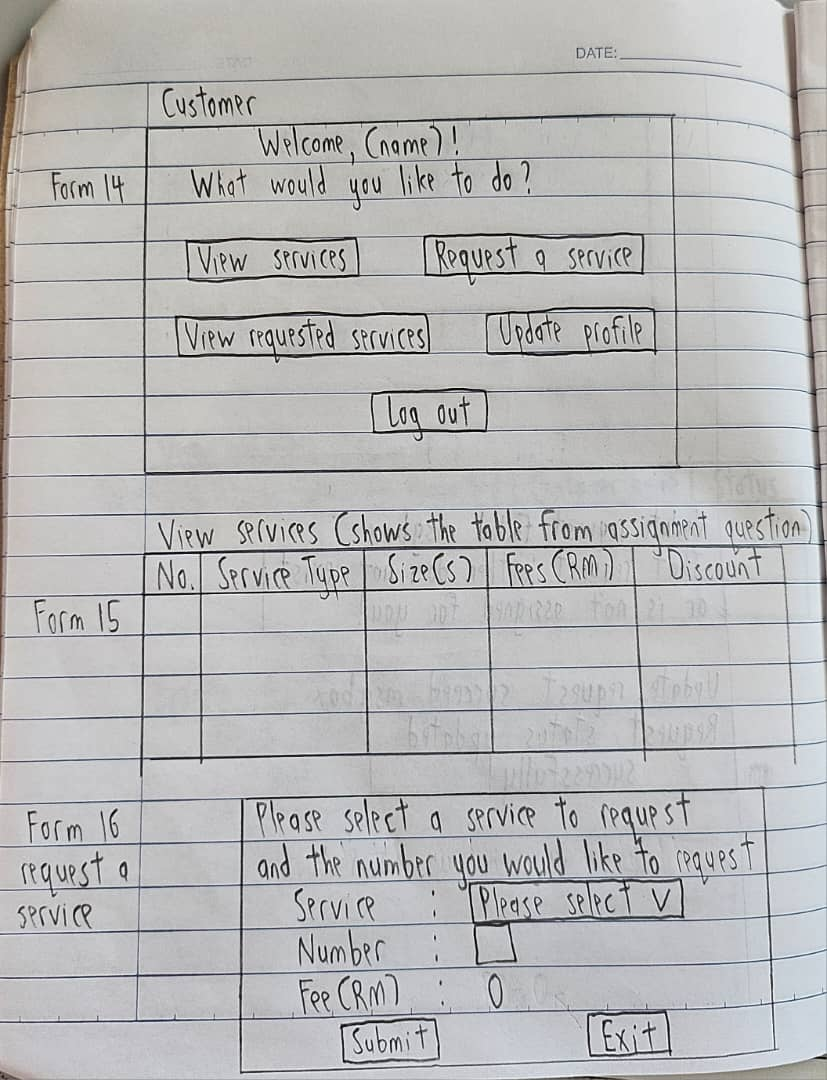 DATE:
Customer
Welcome, (name)!
Form 14
What would you like to do?
View services
Request a service
View requested services
Update profile
Log out
View services (shows the table from assignment question)
No. Service Type Size(s) Fees (RM) Discount
Form 15
Form 16
request a
service
Please select a service to request
and the number you would like to request
Service : Please select V
Number :
Fee (RM) : 0
Submit
Exit